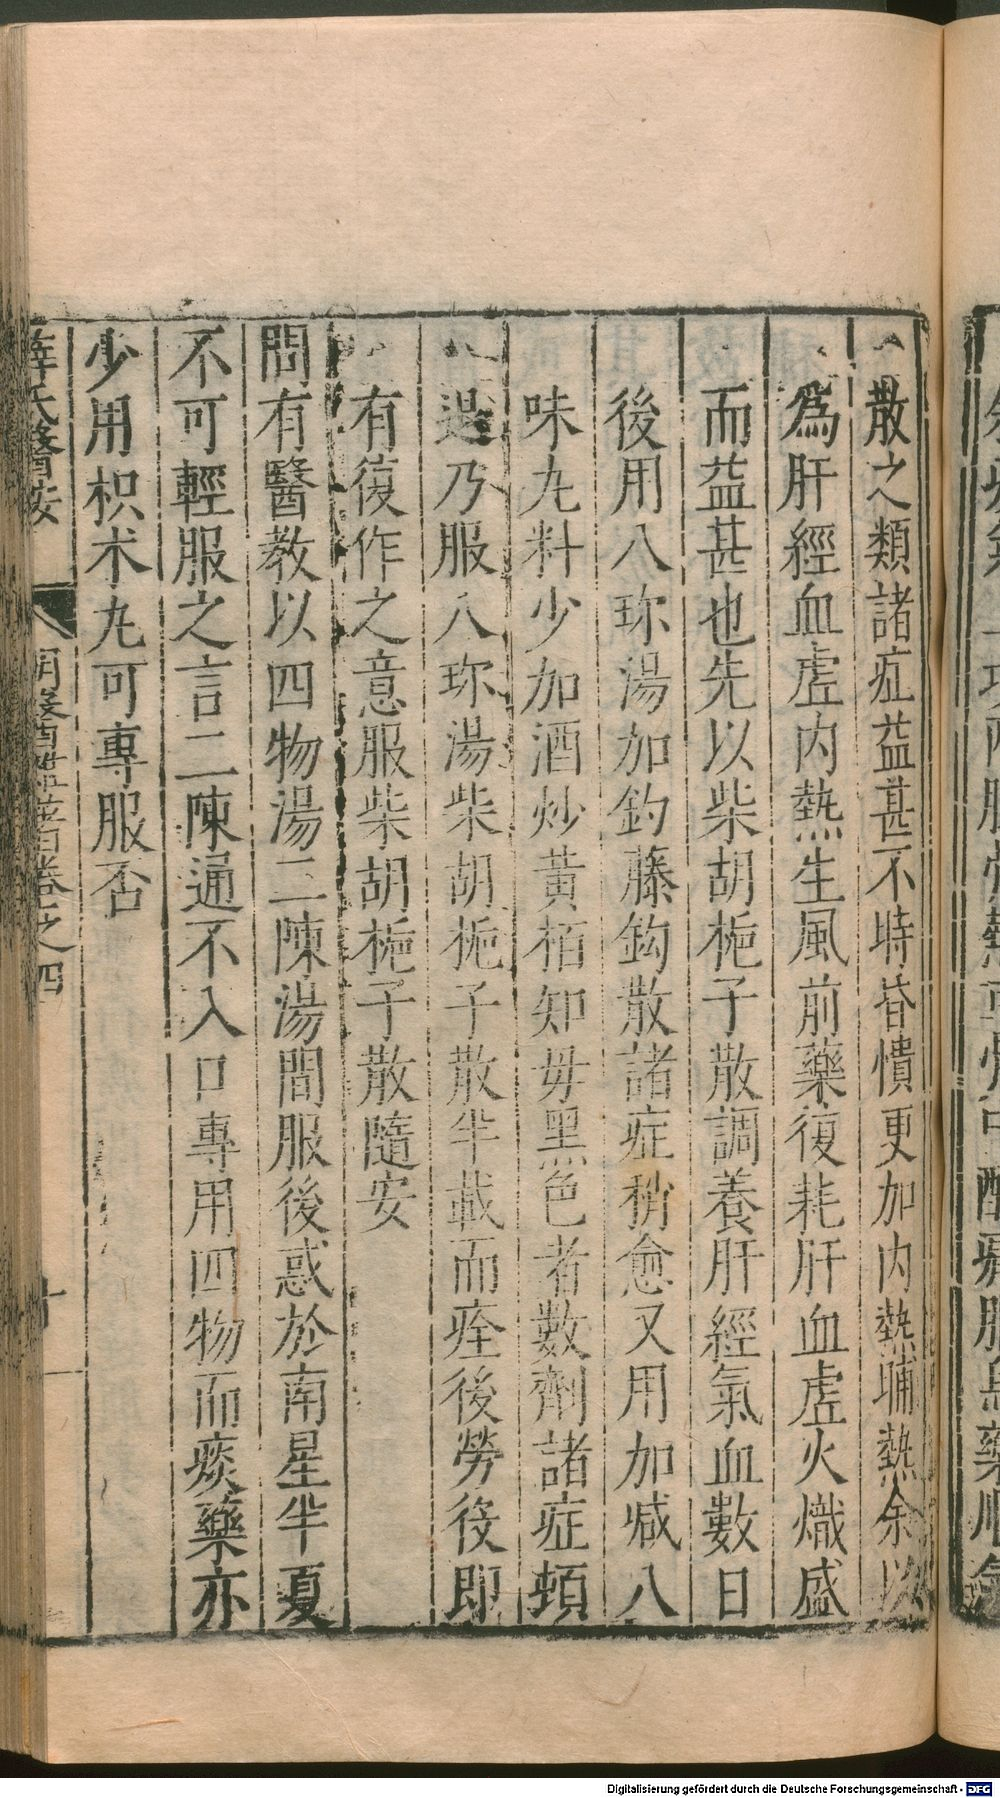 散之類諸症益甚不時昏憒更加内熱晡熱余以
爲肝經血虛内熱生風前藥復耗肝血虛火熾盛
而益甚也先以柴胡梔子散調養肝經氣血數日
後用八珎湯加釣藤鈎散諸症稍愈又用加减八
味丸料少加酒炒黃栢知毋黑色者數劑諸症頓
退乃服八珎湯柴胡梔子散半載而痊後勞役即
有復作之意服柴胡梔子散隨安
問有醫教以四物湯二陳湯間服後惑於南星半夏
不可輕服之言二陳通不入口專用四物而痰藥亦
少用枳术丸可專服否
薛氏醫按
卷之四
Digitalisierung gefördert durch die Deutsche Forschungsgemeinschaft - DFG